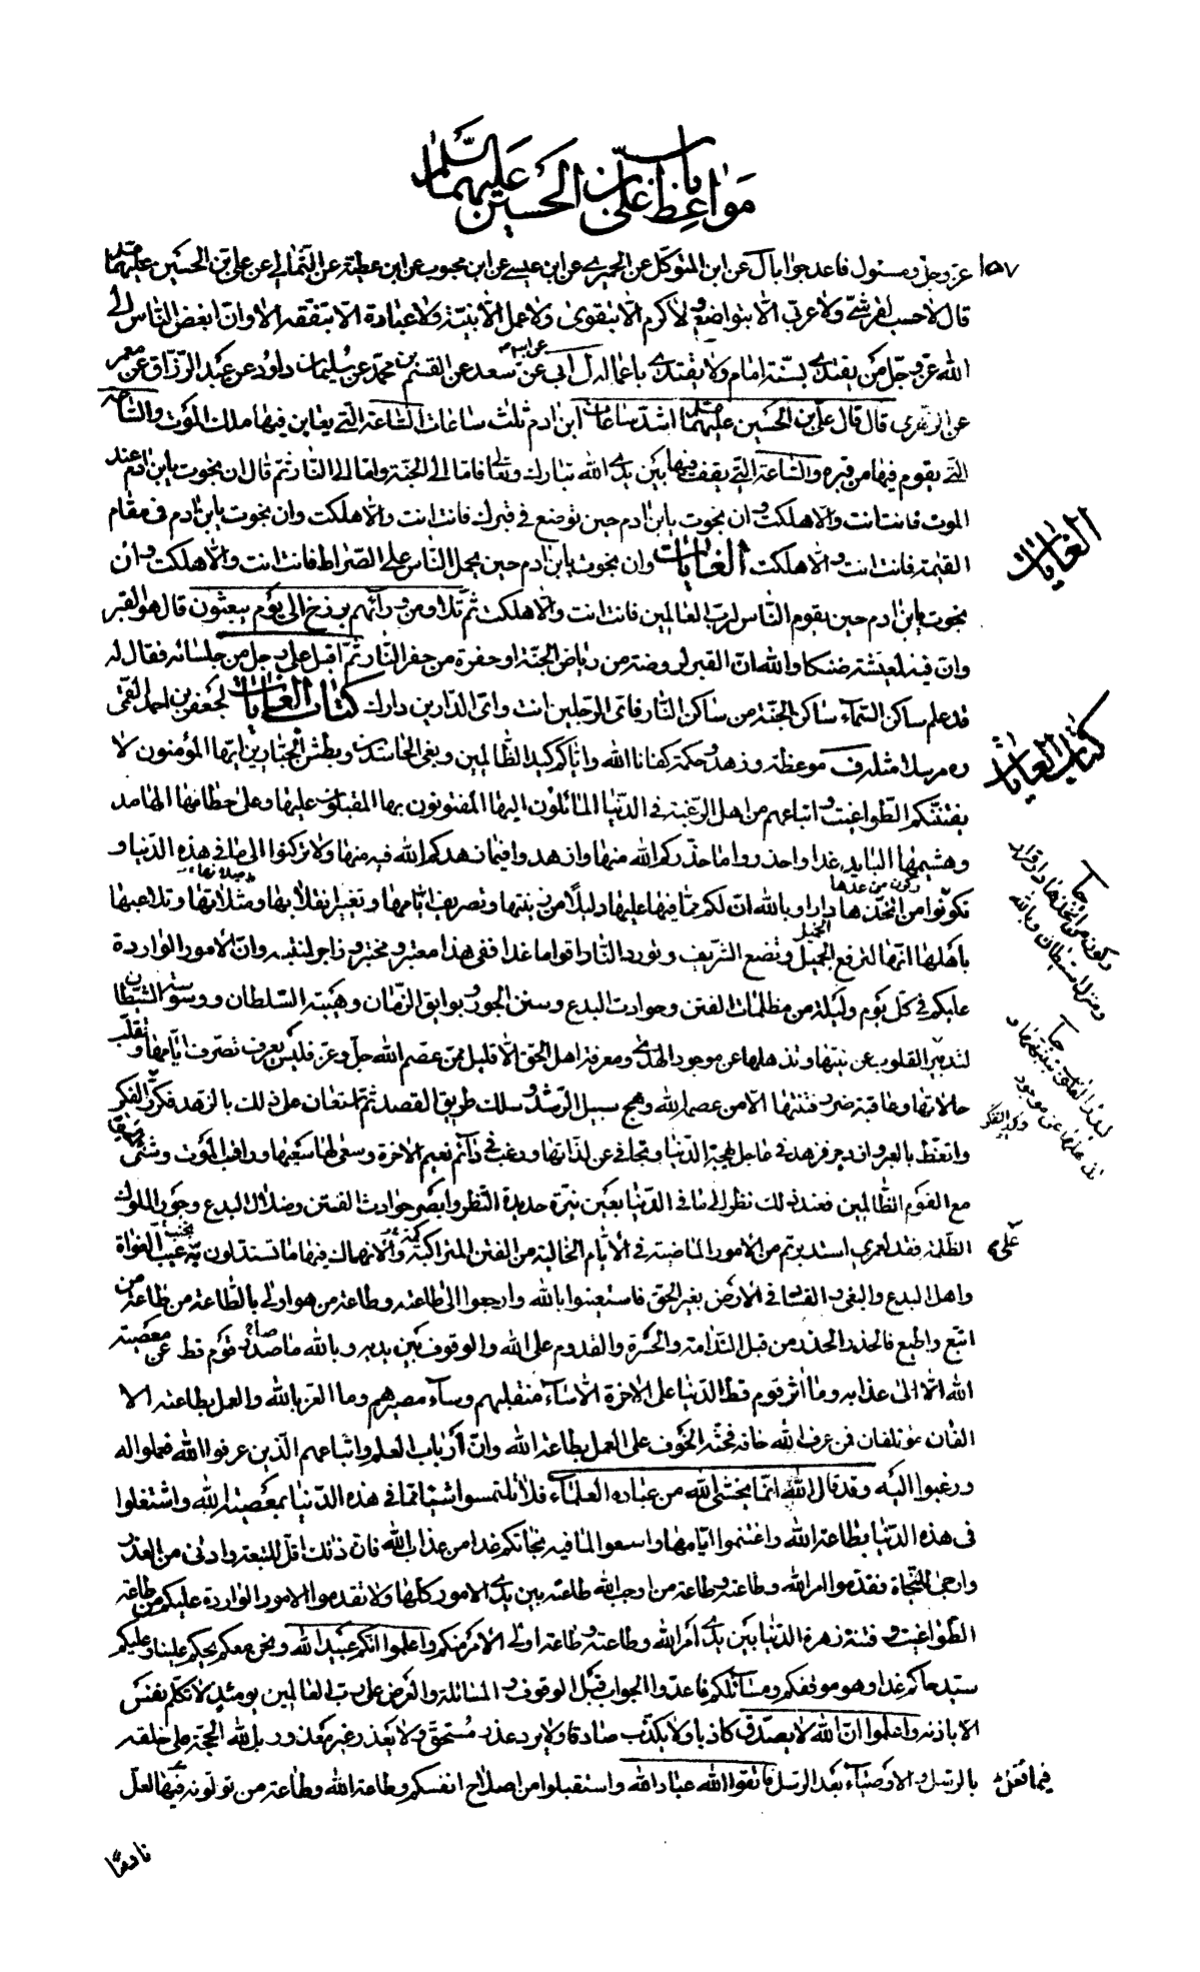 باب
مواعظ علي بن الحسين عليهما السلام
١٥٧
عز وجل ومسئول فاعد جوابا باك عن ابن المتوكل عن الحميري عن ابن عيسى عن ابن محبوب عن ابن عطية عن الثمالي عن علي بن الحسين عليهما
قال لا حسب لقرشي ولا عربي الا بتواضع ولا كرم الا بتقوى ولا عمل الا بنية ولا عبادة الا بتفقه الا وان ابغض الناس الى
الله عز وجل من يقتدي بسنة امام ولا يقتدي باعماله ل ابي عن سعد عن القسم بن محمد عن سليمان بن داود عن عبد الرزاق عن معمر
عن الزهري قال قال علي بن الحسين عليهما اشد ساعات ابن ادم ثلث ساعات الساعة التي يعاين فيها ملك الموت والساعة
التي يقوم فيها من قبره والساعة التي يقف فيها بين يدي الله تبارك وتعالى فاما الى الجنة واما الى النار ثم قال ان نجوت يابن ادم عند
الموت فانت انت والا هلكت وان نجوت يابن ادم حين توضع في قبرك فانت انت والا هلكت وان نجوت يابن ادم في مقام
القيمة فانت انت والا هلكت الغايات وان نجوت يابن ادم حين يحمل الناس على الصراط فانت انت والا هلكت وان
الغايات
نجوت يابن ادم حين يقوم الناس لرب العالمين فانت انت والا هلكت ثم تلا ومن ورائهم برزخ الى يوم يبعثون قال هو القبر
وان فيه لمعيشة ضنكا والله ان القبر لروضة من رياض الجنة او حفرة من حفر النار ثم اقبل على رجل من جلسائه فقال له
قد علم ساكن السماء ساكن الجنة من ساكن النار فاي الرجلين انت واي الدارين دارك كتاب الغايات لجعفر بن احمد القمي
كتاب الغايات
ره مرسلا مثله ف موعظة وزهد وحكمة كفانا الله واياكم كيد الظالمين وبغى الحاسدين وبطش الجبارين ايها المؤمنون لا
يفتننكم الطواغيت واتباعهم من اهل الرغبة في الدنيا المائلون اليها المفتونون بها المقبلون عليها وعلى حطامها الهامد
وهشيمها البايد غدا واحذروا ما حذركم الله منها وازهدوا فيما زهدكم الله فيه منها ولا تركنوا الى ما في هذه الدنيا و
ركون من عدها
ركون من اتخذها دار قرار ومنزل استيطان وبالله
تكونوا من اتخذها دارا وبالله ان لكم مما فيها عليها دليلا من زينتها وتصريف ايامها وتغيير انقلابها ومثلاتها وتلاعبها
باهلها انها لترفع الخميل وتضع الشريف وتورد النار اقواما غدا ففي هذا معتبر ومختبر وزاجر لمنتبه وان الامور الواردة
عليكم في كل يوم وليلة من مظلمات الفتن وحوادث البدع وسنن الجور وبوايق الزمان وهيبة السلطان ووسوسة الشيطان
لتدبير القلوب عن نيتها وتذهلها عن موجود الهدى ومعرفة اهل الحق الا قليل ممن عصم الله جل وعز فليس يعرف تصرف ايامها وتقلب
حالاتها وعاقبة ضرر فتنتها الا من عصم الله ونهج سبيل الرشد وسلك طريق القصد ثم استعان على ذلك بالزهد فكرر الفكر
واتعظ بالعبر وازدجر فزهد في عاجل بهجة الدنيا وتجافى عن لذاتها ورغب في دائم نعيم الاخرة وسعى لها سعيها وراقب الموت وشنئ الحيوة
مع القوم الظالمين فعند ذلك نظر الى ما في الدنيا بعين نيرة حديدة النظر وابصر حوادث الفتن وضلال البدع وجور الملوك
الظلمة فقد لعمري استدبرتم من الامور الماضية في الايام الخالية من الفتن المتراكمة والانهماك فيها ما تستدلون به على تجنب الغواة
واهل البدع والبغي والفساد في الارض بغير الحق فاستعينوا بالله وارجعوا الى طاعته وطاعة من هو اولى بالطاعة من طاعة من
اتبع واطيع فالحذر الحذر من قبل الندامة والحسرة والقدوم على الله والوقوف بين يديه وبالله ما صدر قوم قط عن معصية
الله الا الى عذابه وما اثر قوم قط الدنيا على الاخرة الا ساء منقلبهم وساء مصيرهم وما العز بالله والعمل بطاعته الا
الفان مؤتلفان فمن عرف الله خافه فحثه الخوف على العمل بطاعة الله وان ارباب العلم واتباعهم الذين عرفوا الله فعملوا له
ورغبوا اليه وقد قال الله انما يخشى الله من عباده العلماء فلا تلتمسوا شيئا مما في هذه الدنيا بمعصية الله واشتغلوا
في هذه الدنيا بطاعة الله واغتنموا ايامها واسعوا لما فيه نجاتكم غدا من عذاب الله فان ذلك اقل للتبعة وادنى من العذر
وارجى للنجاة فقدموا امر الله وطاعته وطاعة من اوجب الله طاعته بين يدي الامور كلها ولا تقدموا الامور الواردة عليكم من طاعة
الطواغيت وفتنة زهرة الدنيا بين يدي امر الله وطاعته وطاعة اولى الامر منكم واعلموا انكم عبيد الله ونحن معكم يحكم علينا وعليكم
سيد حاكم غدا وهو موقفكم ومسائلكم فاعدوا الجواب قبل الوقوف والمسائلة والعرض على رب العالمين يومئذ لا تكلم نفس
الا باذنه واعلموا ان الله لا يصدق كاذبا ولا يكذب صادقا ولا يرد عذر مستحق ولا يعذر غير معذور بل لله الحجة على خلقه
بالرسل والاوصياء بعد الرسل فاتقوا الله عباد الله واستقبلوا من اصلاح انفسكم وطاعة الله وطاعة من تولونه فيها لعل
نادما